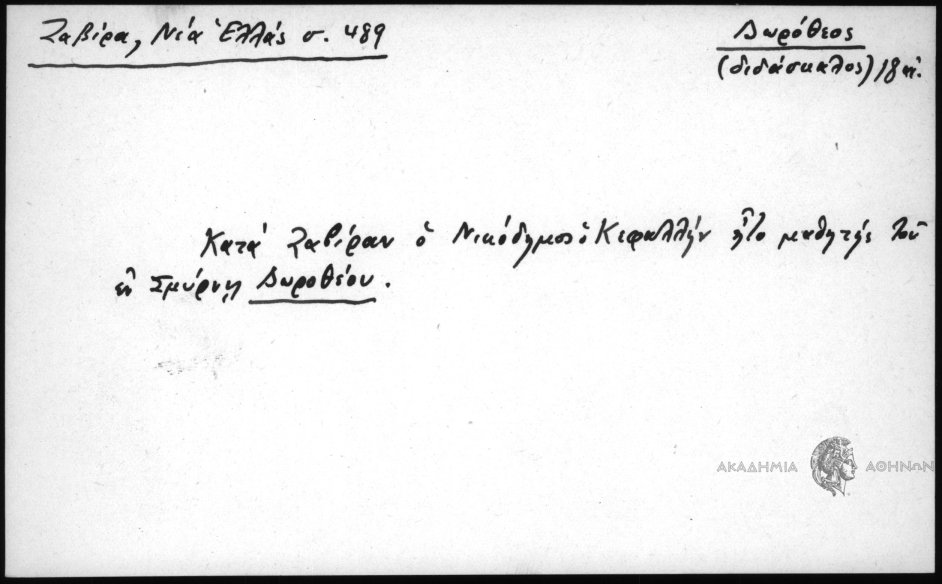 Ζαβίρα, Νέα Ἑλλάς σ. 489
Δωρόθεος
(διδάσκαλος) 18 αἰ.
Κατά Ζαβίραν ὁ Νικόδημος ὁ Κεφαλλήν ἦτο μαθητής τοῦ
ἐν Σμύρνῃ Δωροθέου.
ΑΚΑΔΗΜΙΑ ΑΘΗΝΩΝ